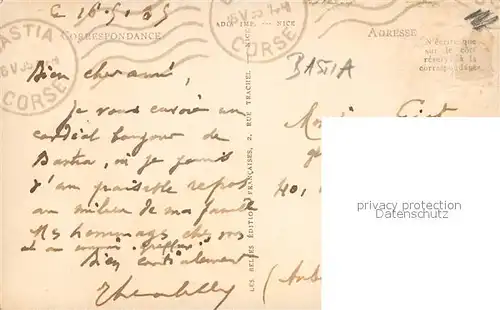 BASTIA
CORSE
CORRESPONDANCE
ADIA IMP. — NICE
ADRESSE
N'écrire que
sur le côté
réservé à la
correspondance
Le 16.5.35
BASTIA
Bien cher ami,
Je vous envoie un
cordial bonjour de
Bastia, où je jouis
d'un paisible repos
au milieu de ma famille
Mes hommages chez vous
et au
Bien cordialement
LES BELLES ÉDITIONS FRANÇAISES, 2, RUE TRACHEL - NICE
40,
privacy protection
Datenschutz